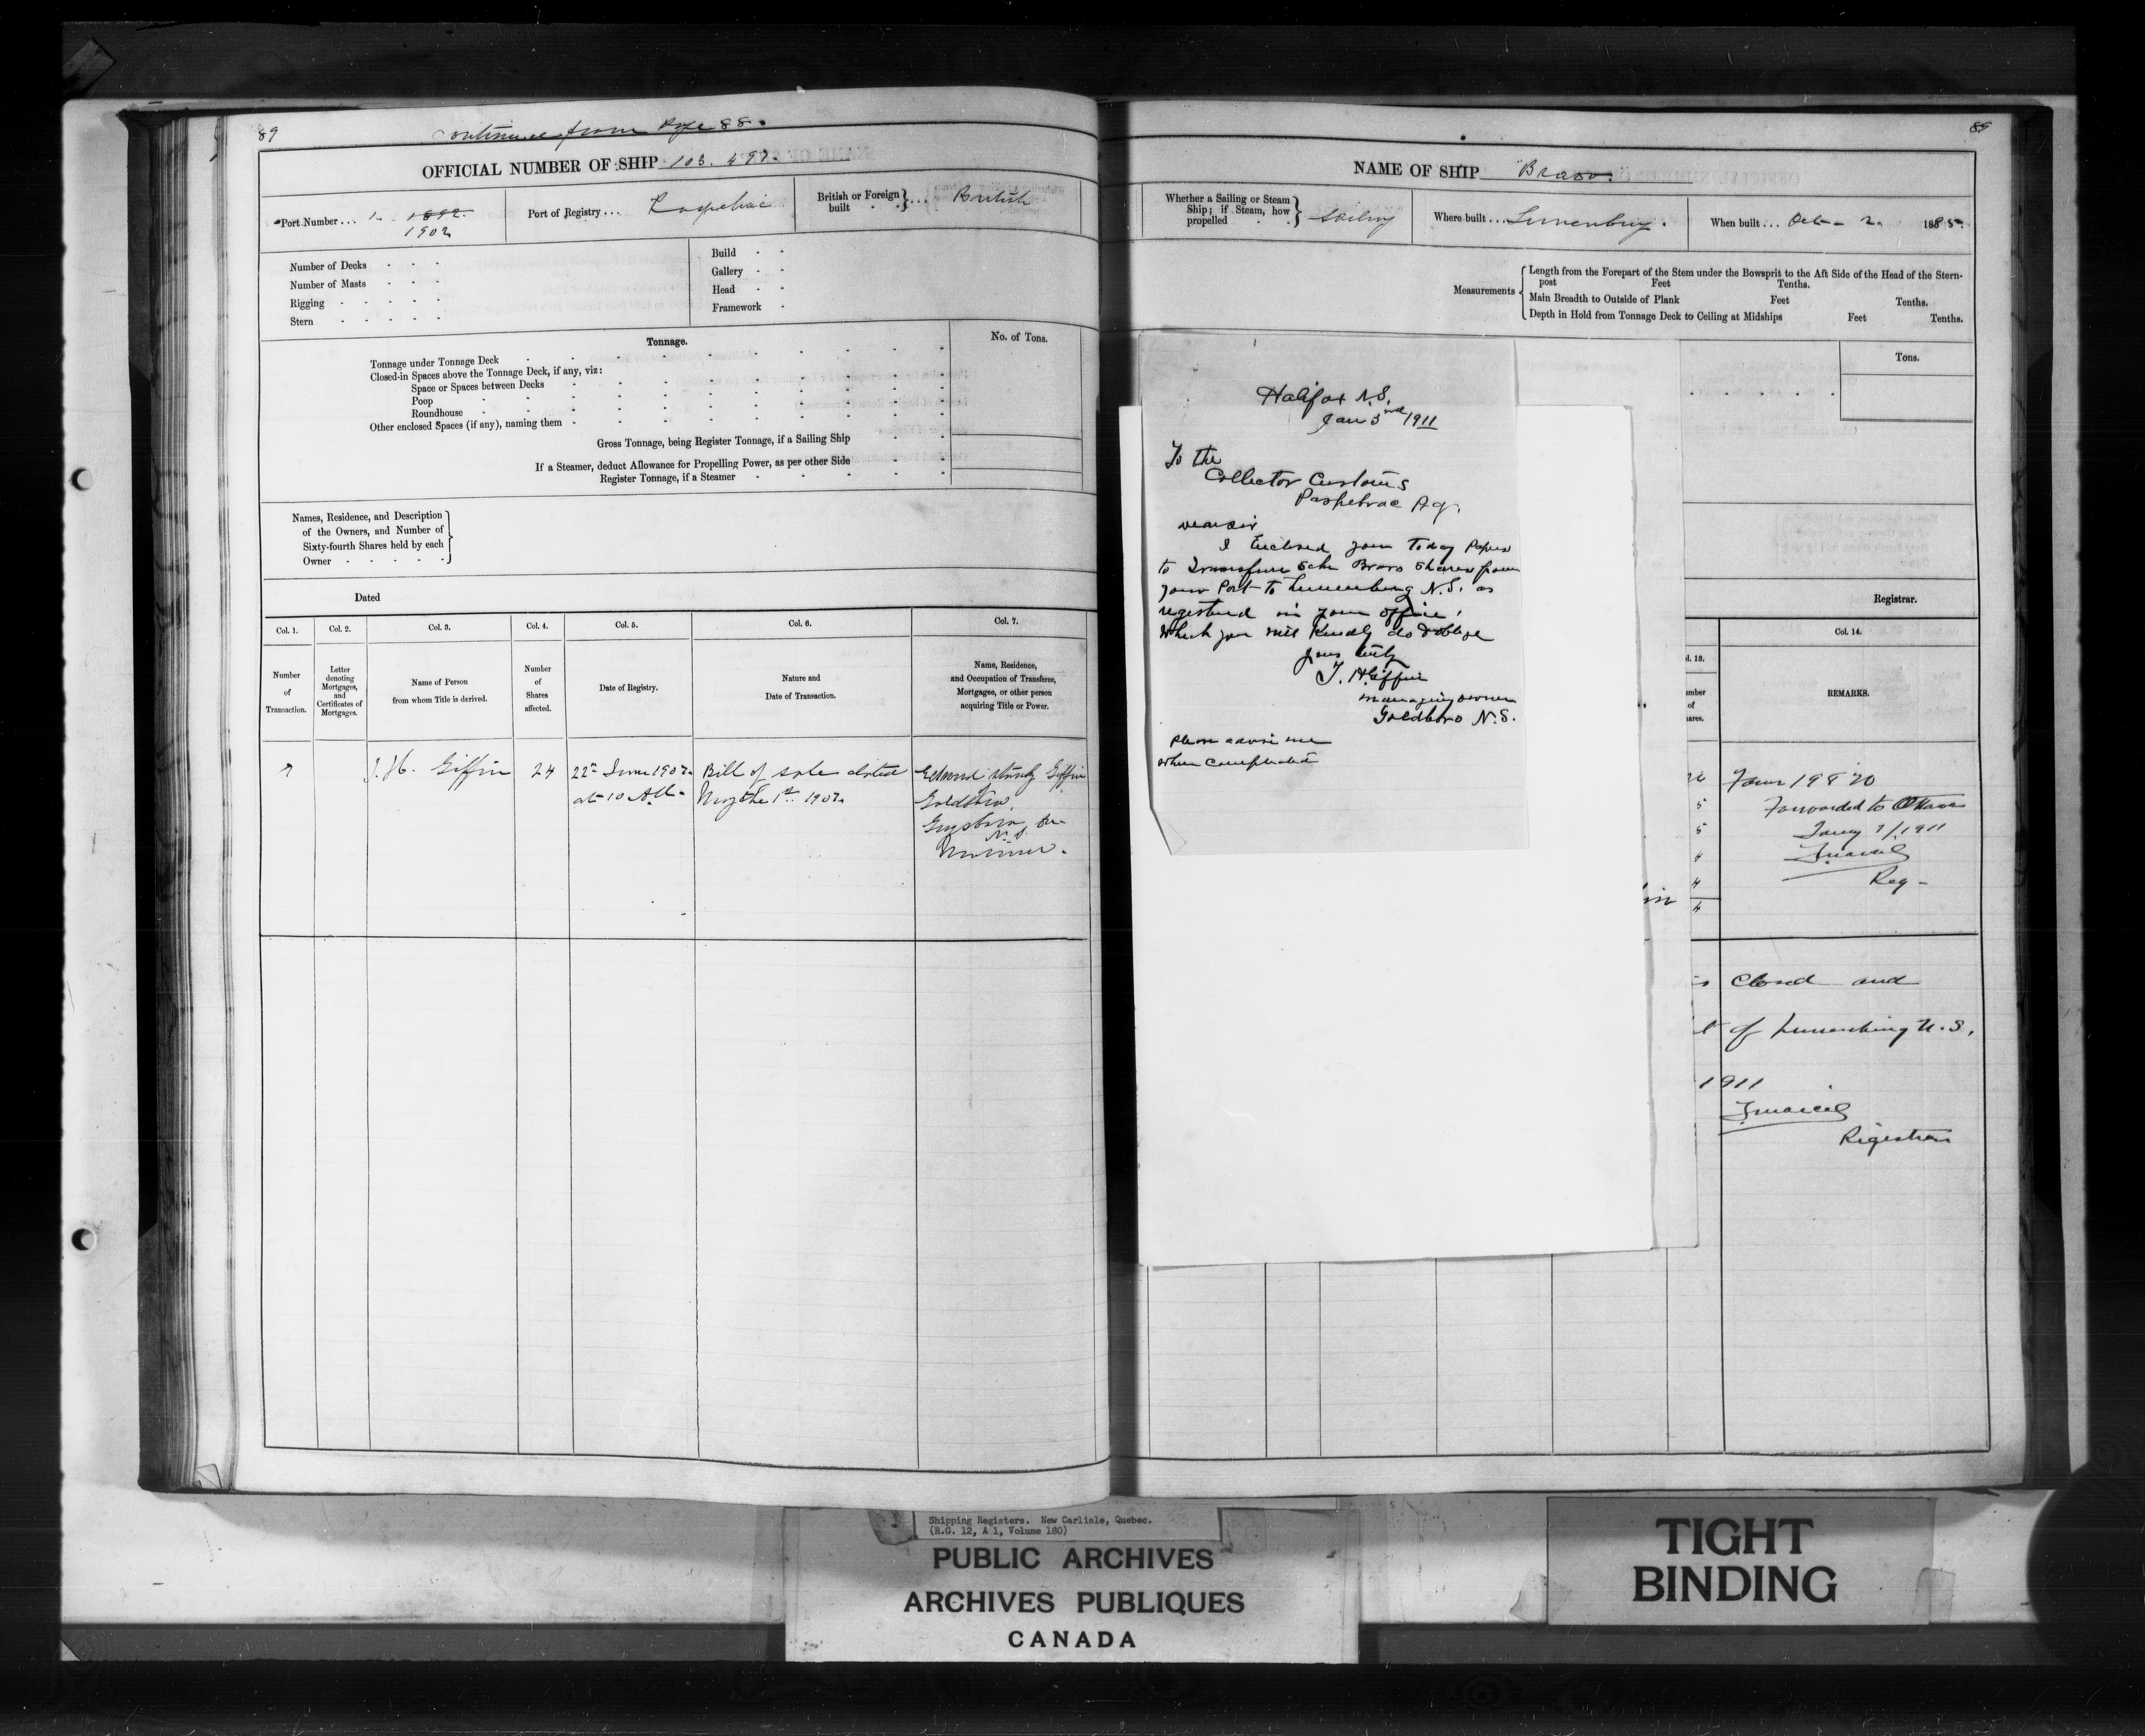 89
Continued from Page 88.
OFFICIAL NUMBER OF SHIP 103.497.
Port Number . . . 1. 1892.
1902
Port of Registry . . . Paspebiac
British or Foreign built . . . British
Number of Decks
Number of Masts
Rigging
Stern
Build
Gallery
Head
Framework
Tonnage.
No. of Tons.
Tonnage under Tonnage Deck
Closed-in Spaces above the Tonnage Deck, if any, viz:
Space or Spaces between Decks
Poop
Roundhouse
Other enclosed Spaces (if any), naming them
Gross Tonnage, being Register Tonnage, if a Sailing Ship
If a Steamer, deduct Allowance for Propelling Power, as per other Side
Register Tonnage, if a Steamer
Names, Residence, and Description
of the Owners, and Number of
Sixty-fourth Shares held by each
Owner
Dated
Col. 1.
Col. 2.
Col. 3.
Col. 4.
Col. 5.
Col. 6.
Col. 7.
Number of Transaction.
Letter denoting Mortgages, and Certificates of Mortgages.
Name of Person from whom Title is derived.
Number of Shares affected.
Date of Registry.
Nature and Date of Transaction.
Name, Residence, and Occupation of Transferee, Mortgagee, or other person acquiring Title or Power.
7
J. H. Giffin
24
22nd June 1907
at 10 AM
Bill of sale dated
May the 1st 1907
Giffin
Goldboro,
N.S.
Mariner.
89
NAME OF SHIP "Bravo."
Whether a Sailing or Steam
Ship; if Steam, how
propelled
Sailing
Where built . . . Lunenburg.
When built . . . Oct- 2. 1885.
Measurements
Length from the Forepart of the Stem under the Bowsprit to the Aft Side of the Head of the Stern-
post Feet Tenths.
Main Breadth to Outside of Plank Feet Tenths.
Depth in Hold from Tonnage Deck to Ceiling at Midships Feet Tenths.
Tons.
Registrar.
Halifax N.S.
Jan 3rd 1911
To the
Collector Customs
Paspebiac P.Q.
Dear Sir
I Enclosed you Today Papers
to Transfure Schr Bravo Shares from
your Port to Lunenburg N.S. as
registered in your office,
Which you will Kindly do & oblige
yours truly
J. H Giffin
managing owner
Goldboro N.S.
please advise me
when completed
Col. 14.
REMARKS.
Form 19 & 20
Forwarded to Ottawa
Jany 7/1911
Reg-
Closed and
of Lunenburg N.S.
1911
Registrar
Shipping Registers. New Carlisle, Quebec.
(R.G. 12, A 1, Volume 180)
PUBLIC ARCHIVES
ARCHIVES PUBLIQUES
CANADA
TIGHT
BINDING